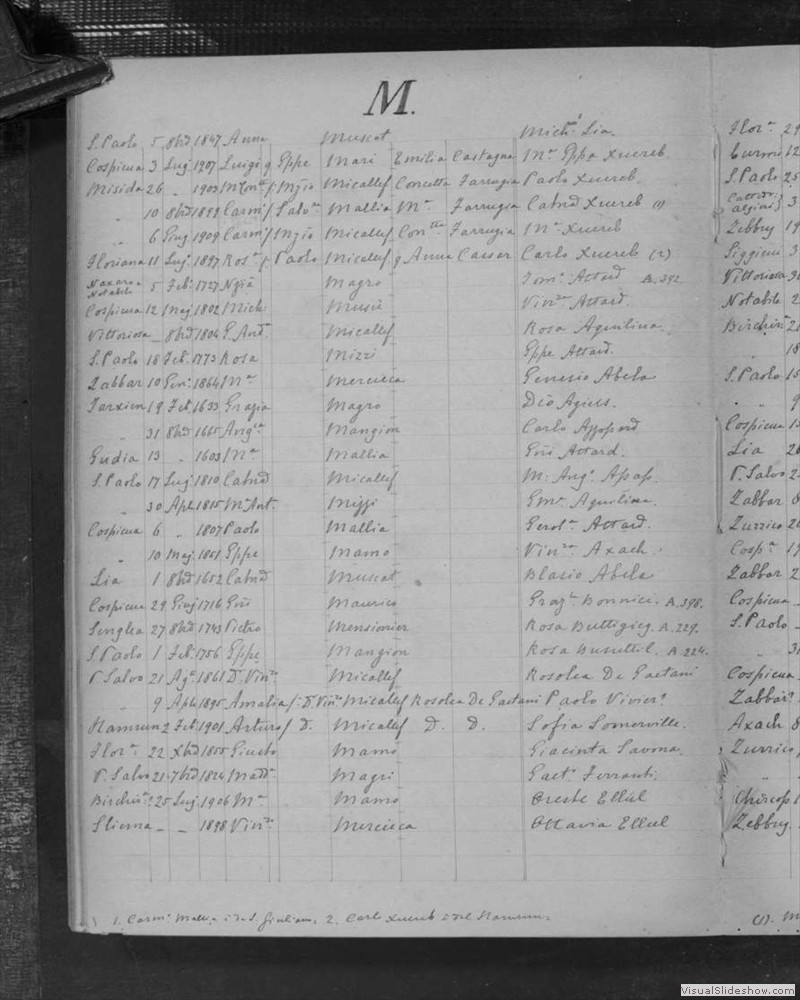 M.
S. Paolo 5 8bd 1847 Anna Muscat Mich. Lia
Cospicua 3 Lug 1907 Luigi q Eppe Mari Emilia Castagna Ma Eppa Xuereb
Misida 26 " 1903 Micallef Concetta Farrugia Paolo Xuereb
" 10 8bd 1899 Carm. f Salv. Mallia Ma Farrugia Catnd Xuereb (1)
" 6 Giug 1909 Carm. f Micallef Con. Farrugia Ma Xuereb
Floriana 11 Lug 1897 Ros. f Paolo Micallef q Anna Caesar Carlo Xuereb (2)
Naxaro e
Notabile 5 Feb. 1727 Magro Tom. Attard A. 392
Cospicua 12 Mag 1802 Mich Vin. Attard
Vittoriosa - 8bd 1804 Micallef Rosa Aquilina
S. Paolo 18 Feb. 1773 Rosa Mizzi Eppe Attard
Zabbar 10 Gen. 1864 Ma Mercieca Genesio Abela
Tarxien 19 Feb 1633 Grazia Magro Agius
" 31 8bd 1665 Ang. Mangion Carlo
Gudia 13 " 1603 Ma Mallia Attard
S. Paolo 17 Lug 1810 Catnd Micallef M. Ang.
" 30 Apl. 1815 M. Ant. Miffi Em. Aquilina
Cospicua 6 " 1807 Paolo Mallia Gerol. Attard
" 10 Mag. 1851 Eppe Mamo Vin. Axach
Lia 1 8bd 1652 Catnd Muscat Blasio Abela
Cospicua 29 Giug 1716 Maurico Graz. Bonnici. A. 398.
Senglea 27 8bd 1743 Pietro Mensionier Rosa Buttigieg. A. 229.
S. Paolo 1 Feb. 1756 Eppe Mangion Rosa Busuttil. A. 224.
P. Salvo 21 Ag. 1861 D. Vin. Micallef Rosolea De Gaetani
" 9 Apl. 1895 Amalia f. D. Vin. Micallef Rosolea De Gaetani Paolo Vivier
Hamrun 2 Feb 1901 Arturo f D. Micallef D. D. Sofia Somerville
Flor. 22 Xbd 1855 Mamo Giacinta Savona
P. Salvo 21 7bd 1824 Madd. Magri Gaet. Ferranti
Birchir. 25 Lug 1906 Ma Mamo Oreste Ellul
Sliema - - 1898 Vin. Mercieca Ottavia Ellul
1. Carm. Mallia è di S. Giuliano. 2. Carlo Xuereb è del Hamrun.
Flor. 29
12
S. Paolo 25
3
Zebbug 19
Siggieui 3
Vittoriosa 30
Notabile 2
Birchir. 21
18
S. Paolo 15
" 9
Cospicua 13
Lia 26
P. Salvo 2
Zabbar 8
Zurrico 26
Cosp. 19
Zabbar 2
Cospicua
S. Paolo
" 31
Cospicua
Zabbar
Axach 8
Zurrico
Chircop
Zebbug
(1). M
VisualSlideshow.com